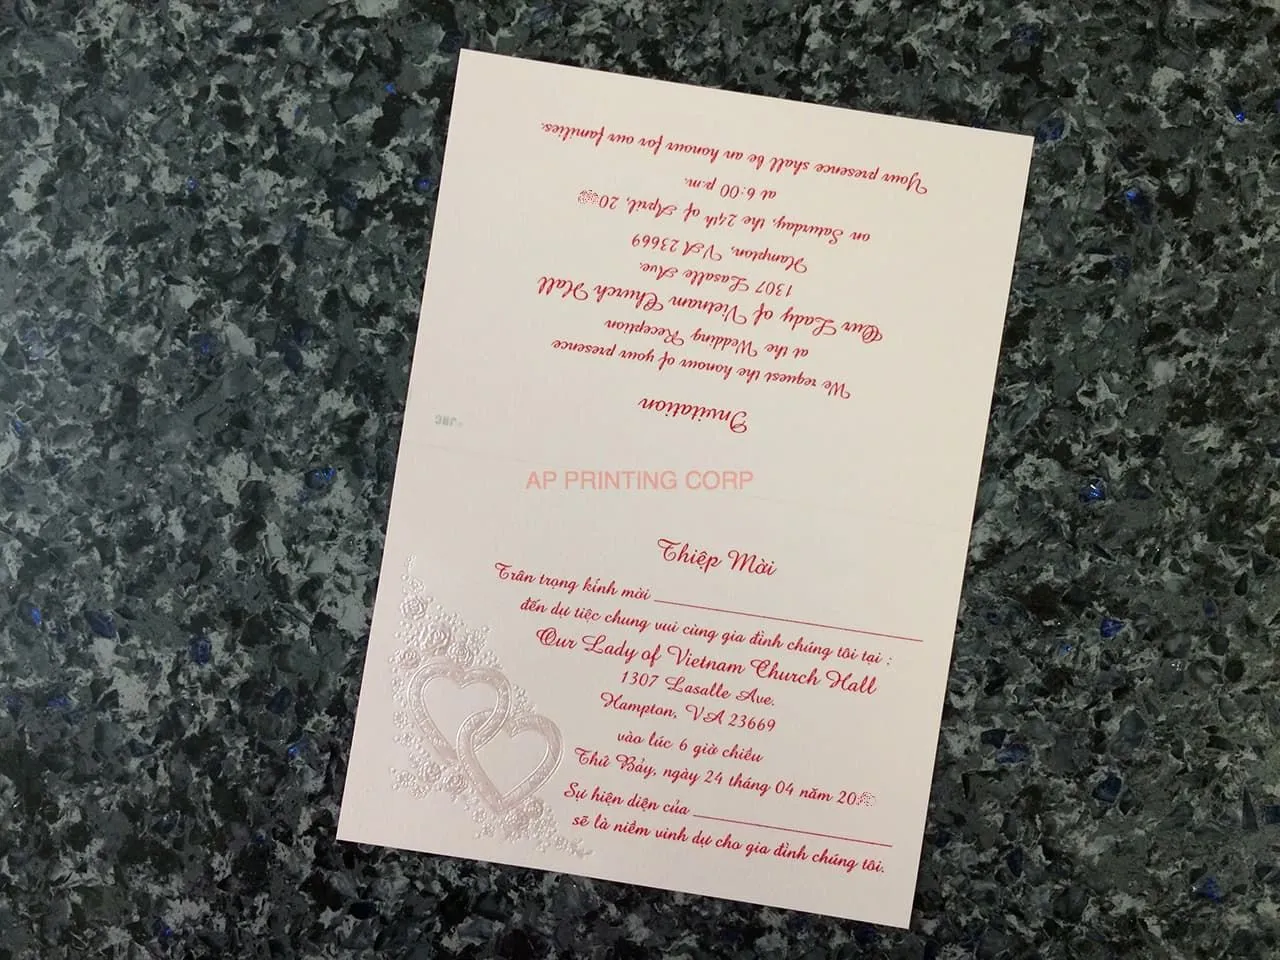 Invitation
We request the honour of your presence
at the Wedding Reception
Our Lady of Vietnam Church Hall
1307 Lasalle Ave.
Hampton, VA 23669
on Saturday, the 24th of April, 20
at 6:00 p.m.
Your presence shall be an honour for our families.
JRC
AP PRINTING CORP
Thiệp Mời
Trân trọng kính mời
đến dự tiệc chung vui cùng gia đình chúng tôi tại :
Our Lady of Vietnam Church Hall
1307 Lasalle Ave.
Hampton, VA 23669
vào lúc 6 giờ chiều
Thứ Bảy, ngày 24 tháng 04 năm 20
Sự hiện diện của
sẽ là niềm vinh dự cho gia đình chúng tôi.